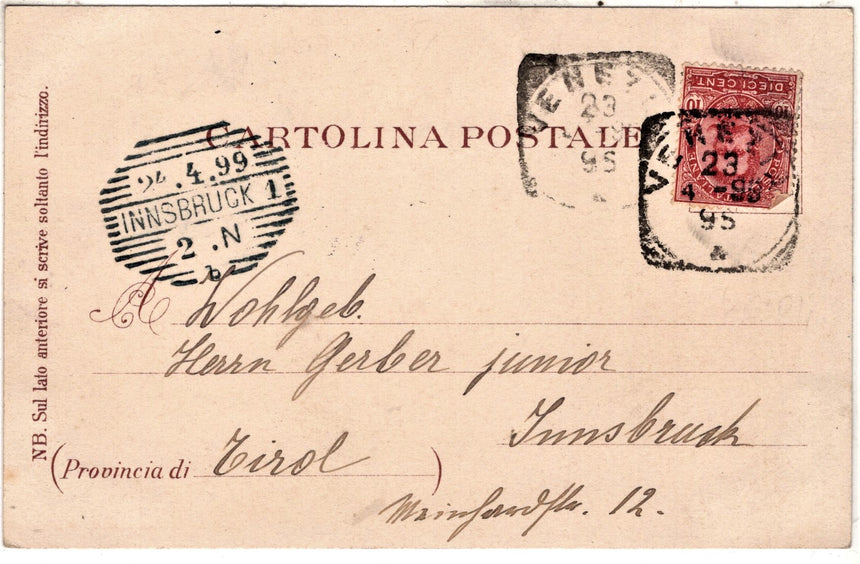 DIECI CENT.
10 10
VENEZIA
23
95
VENEZIA
23
4 - 95
95
CARTOLINA POSTALE
24.4.99
INNSBRUCK 1
2.N
b
NB. Sul lato anteriore si scrive soltanto l'indirizzo.
A Wohlgeb.
Herrn Gerber junior
Innsbruck
(Provincia di Tirol)
Meinhardstr. 12.